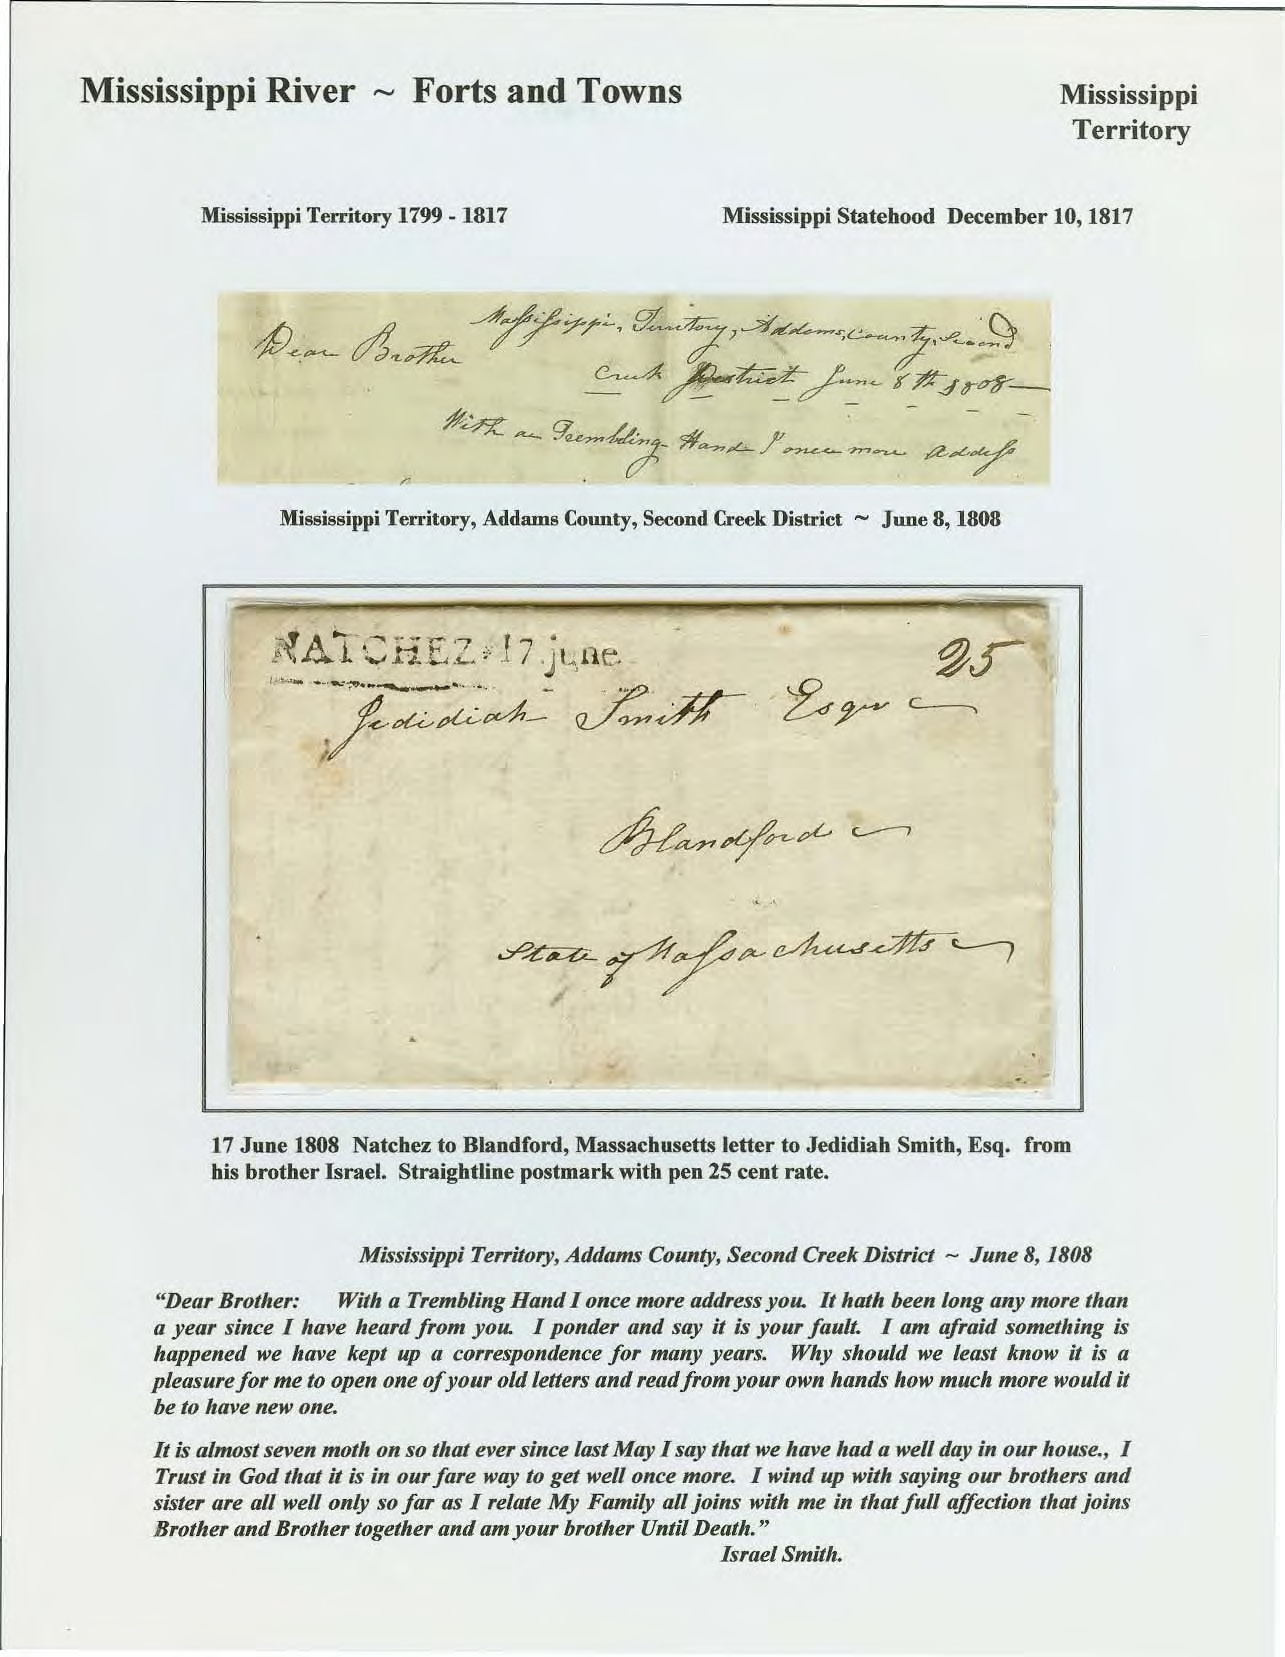 Mississippi River ~ Forts and Towns
Mississippi
Territory
Mississippi Territory 1799 - 1817
Mississippi Statehood December 10, 1817
Massissippi, Territory, Addams, County, Second
Dear Brother
Creek District June 8th 1808
With a Trembling Hand I once more Address
Mississippi Territory, Addams County, Second Creek District ~ June 8, 1808
NATCHEZ 17 june
25
Jedidiah Smith Esqr
Blandford
State of Massachusetts
17 June 1808 Natchez to Blandford, Massachusetts letter to Jedidiah Smith, Esq. from
his brother Israel. Straightline postmark with pen 25 cent rate.
Mississippi Territory, Addams County, Second Creek District ~ June 8, 1808
“Dear Brother: With a Trembling Hand I once more address you. It hath been long any more than
a year since I have heard from you. I ponder and say it is your fault. I am afraid something is
happened we have kept up a correspondence for many years. Why should we least know it is a
pleasure for me to open one of your old letters and read from your own hands how much more would it
be to have new one.
It is almost seven moth on so that ever since last May I say that we have had a well day in our house., I
Trust in God that it is in our fare way to get well once more. I wind up with saying our brothers and
sister are all well only so far as I relate My Family all joins with me in that full affection that joins
Brother and Brother together and am your brother Until Death.”
Israel Smith.